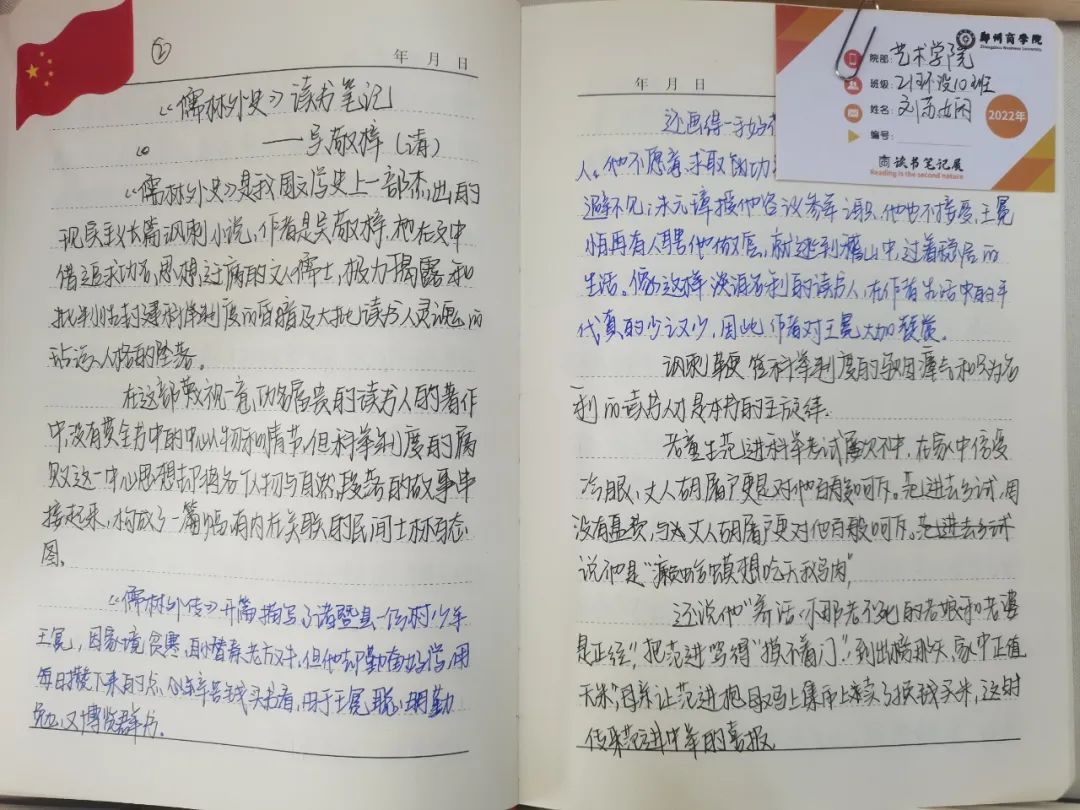 ②
年 月 日
《儒林外史》读书笔记
——吴敬梓（清）
《儒林外史》是我国文学史上一部杰出的
现实主义长篇讽刺小说，作者是吴敬梓，他在文中
借追求功名，思想迂腐的文人儒士，极力揭露和
批判了封建科举制度的昏暗及大批读书人灵魂的
玷污人格的坠落。
在这部敝视一竟、功名富贵的读书人的著作
中，没有贯全书中的中心人物和情节，但科举制度的腐
败这一中心思想却将各个人物与自然段落的故事串
接起来，构成了一篇幅有内在关联的民间士林百态
图。
《儒林外传》开篇描写了诸暨县一位村少年
王冕，因家境贫寒，自小替秦老方文牛，但他却勤奋好学，用
每日攒下来的点心钱买书看，由于王冕聪明勤
勉，又博览群书。
年 月 日
还画得一手好
人。他不愿意求取功
避不见；朱元璋授他咨议参军之职，他也不接受，王冕
怕再有人聘他做官，就逃到稽山中，过着隐居的
生活。像这样淡泊名利的读书人，在作者生活中的年
代真的少之又少，因此作者对王冕大加赞赏。
讽刺鞭笞科举制度的乌烟瘴气和只为名
利的读书人才是本书的主旋律。
老童生范进科举考试屡次不中，在家中倍受
冷眼，丈人胡屠户更是对他百般呵斥。范进去乡试，因
没有盘费，与丈人胡屠户更对他百般呵斥。范进去乡试
说他是“癞蛤蟆想吃天鹅肉”，
还说他“养活你那老不死的老娘和老婆
是正经”，把范进骂得“摸不着门”。到出榜那天，家中正值
无米，母亲让范进把母鸡上集市上卖了换钱买米，这时
传来范进中举的喜报
郑州商学院
Zhengzhou Business University
院部：艺术学院
班级：21环设10班
姓名：
编号：
2022年
读书笔记展
Reading is the second nature